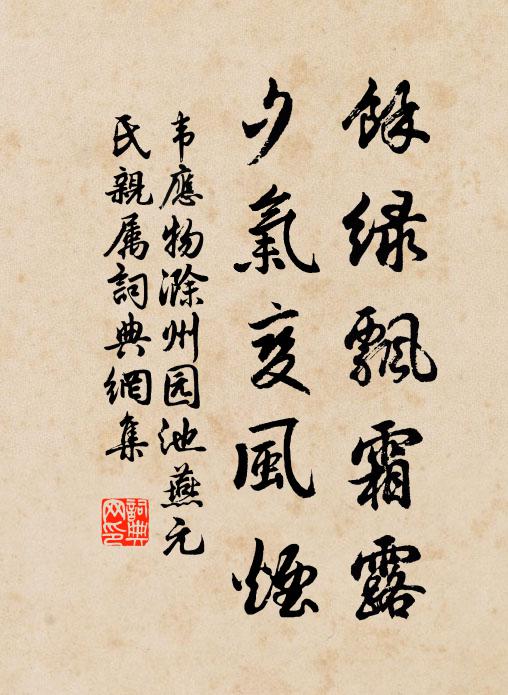 餘綠飄霜露
夕氣變風煙
韦應物滁州园池燕元
氏親属詞典網集
詞典網印